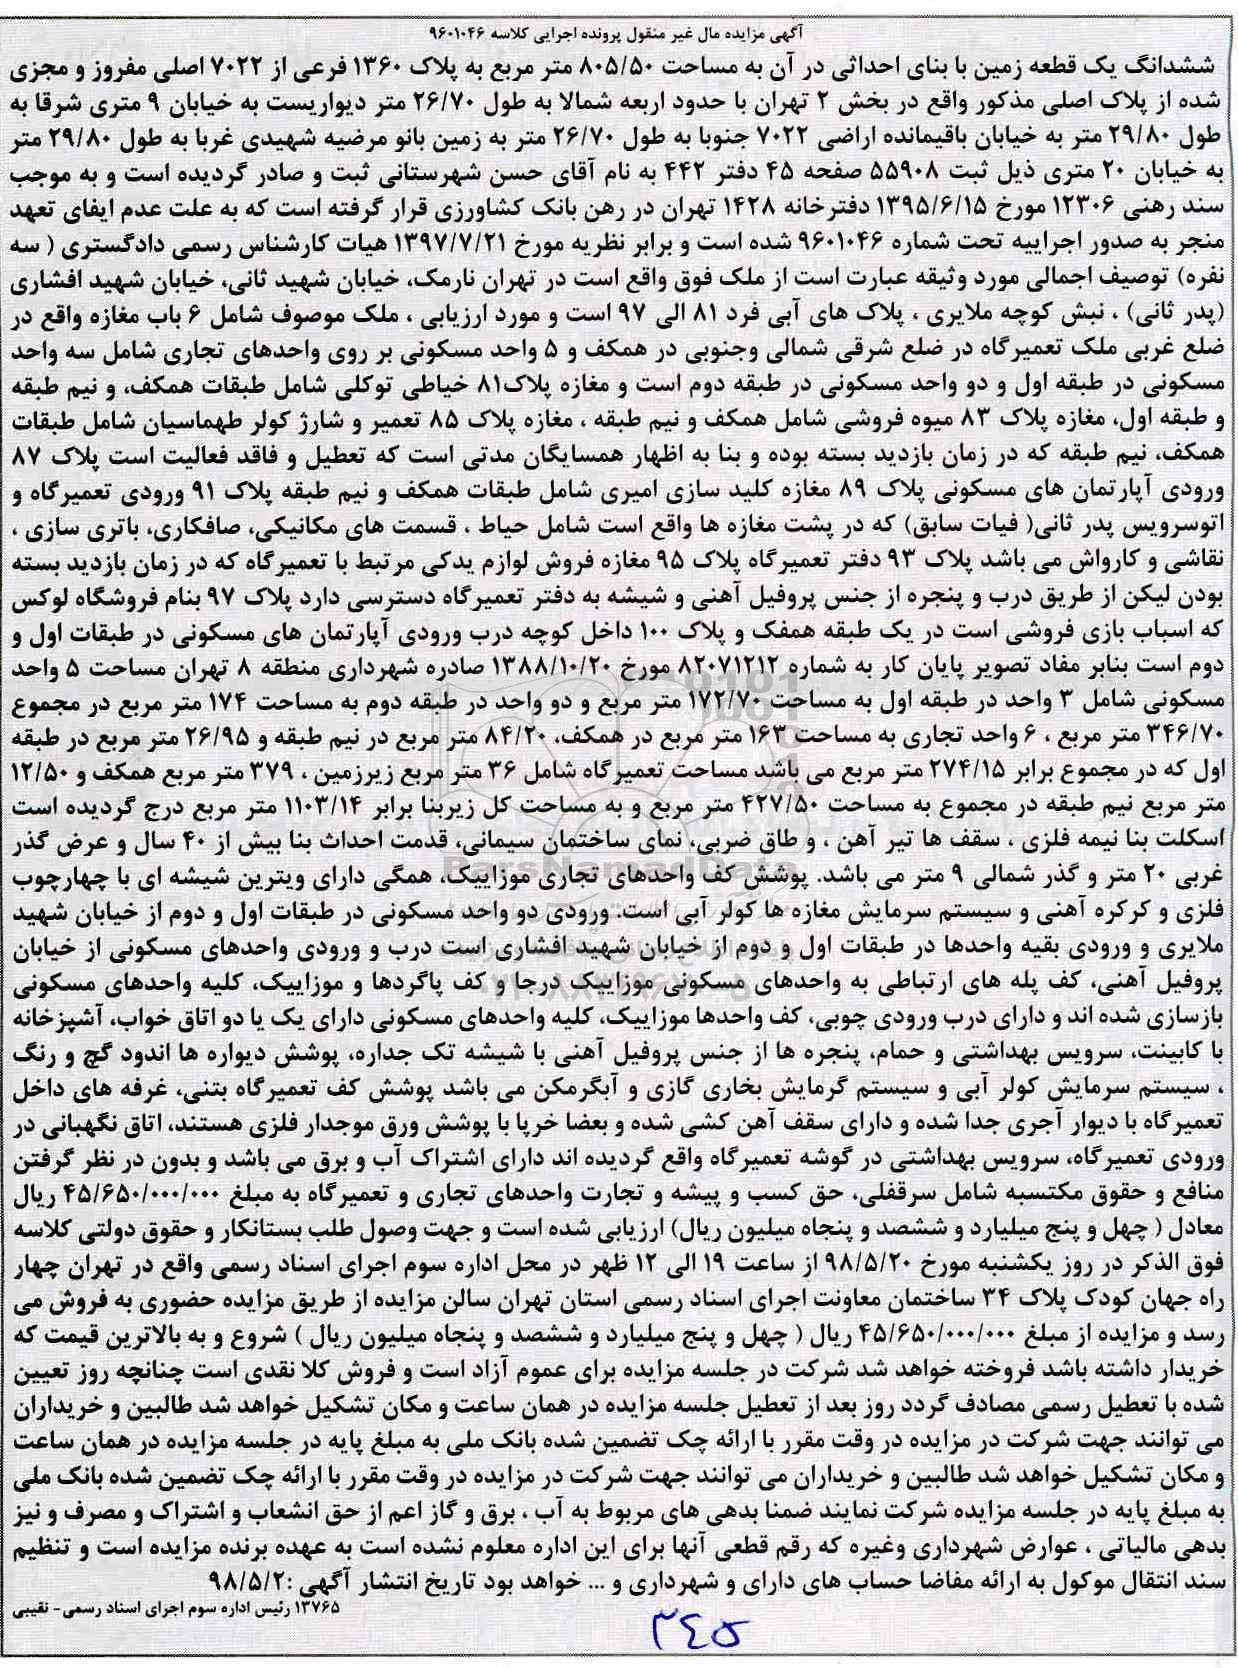 آگهی مزایده مال غیر منقول پرونده اجرایی کلاسه ۹۶۰۱۰۴۶
ششدانگ یک قطعه زمین با بنای احداثی در آن به مساحت ۸۰۵/۵۰ متر مربع به پلاک ۱۳۶۰ فرعی از ۷۰۲۲ اصلی مفروز و مجزی
شده از پلاک اصلی مذکور واقع در بخش ۲ تهران با حدود اربعه شمالا به طول ۲۶/۷۰ متر دیواریست به خیابان ۹ متری شرقا به
طول ۲۹/۸۰ متر به خیابان باقیمانده اراضی ۷۰۲۲ جنوبا به طول ۲۶/۷۰ متر به زمین بانو مرضیه شهیدی غربا به طول ۲۹/۸۰ متر
به خیابان ۲۰ متری ذیل ثبت ۵۵۹۰۸ صفحه ۴۵ دفتر ۴۴۲ به نام آقای حسن شهرستانی ثبت و صادر گردیده است و به موجب
سند رهنی ۱۲۳۰۶ مورخ ۱۳۹۵/۶/۱۵ دفترخانه ۱۴۲۸ تهران در رهن بانک کشاورزی قرار گرفته است که به علت عدم ایفای تعهد
منجر به صدور اجراییه تحت شماره ۹۶۰۱۰۴۶ شده است و برابر نظریه مورخ ۱۳۹۷/۷/۲۱ هیات کارشناس رسمی دادگستری ( سه
نفره) توصیف اجمالی مورد وثیقه عبارت است از ملک فوق واقع است در تهران نارمک، خیابان شهید ثانی، خیابان شهید افشاری
(پدر ثانی) ، نبش کوچه ملایری ، پلاک های آبی فرد ۸۱ الی ۹۷ است و مورد ارزیابی ، ملک موصوف شامل ۶ باب مغازه واقع در
ضلع غربی ملک تعمیرگاه در ضلع شرقی شمالی وجنوبی در همکف و ۵ واحد مسکونی بر روی واحدهای تجاری شامل سه واحد
مسکونی در طبقه اول و دو واحد مسکونی در طبقه دوم است و مغازه پلاک۸۱ خیاطی توکلی شامل طبقات همکف، و نیم طبقه
و طبقه اول، مغازه پلاک ۸۳ میوه فروشی شامل همکف و نیم طبقه ، مغازه پلاک ۸۵ تعمیر و شارژ کولر طهماسیان شامل طبقات
همکف، نیم طبقه که در زمان بازدید بسته بوده و بنا به اظهار همسایگان مدتی است که تعطیل و فاقد فعالیت است پلاک ۸۷
ورودی آپارتمان های مسکونی پلاک ۸۹ مغازه کلید سازی امیری شامل طبقات همکف و نیم طبقه پلاک ۹۱ ورودی تعمیرگاه و
اتوسرویس پدر ثانی( فیات سابق) که در پشت مغازه ها واقع است شامل حیاط ، قسمت های مکانیکی، صافکاری، باتری سازی ،
نقاشی و کارواش می باشد پلاک ۹۳ دفتر تعمیرگاه پلاک ۹۵ مغازه فروش لوازم یدکی مرتبط با تعمیرگاه که در زمان بازدید بسته
بودن لیکن از طریق درب و پنجره از جنس پروفیل آهنی و شیشه به دفتر تعمیرگاه دسترسی دارد پلاک ۹۷ بنام فروشگاه لوکس
که اسباب بازی فروشی است در یک طبقه همفک و پلاک ۱۰۰ داخل کوچه درب ورودی آپارتمان های مسکونی در طبقات اول و
دوم است بنابر مفاد تصویر پایان کار به شماره ۸۲۰۷۱۲۱۲ مورخ ۱۳۸۸/۱۰/۲۰ صادره شهرداری منطقه ۸ تهران مساحت ۵ واحد
مسکونی شامل ۳ واحد در طبقه اول به مساحت ۱۷۲/۷۰ متر مربع و دو واحد در طبقه دوم به مساحت ۱۷۴ متر مربع در مجموع
۳۴۶/۷۰ متر مربع ، ۶ واحد تجاری به مساحت ۱۶۳ متر مربع در همکف، ۸۴/۲۰ متر مربع در نیم طبقه و ۲۶/۹۵ متر مربع در طبقه
اول که در مجموع برابر ۲۷۴/۱۵ متر مربع می باشد مساحت تعمیرگاه شامل ۳۶ متر مربع زیرزمین ، ۳۷۹ متر مربع همکف و ۱۲/۵۰
متر مربع نیم طبقه در مجموع به مساحت ۴۲۷/۵۰ متر مربع و به مساحت کل زیربنا برابر ۱۱۰۳/۱۴ متر مربع درج گردیده است
اسکلت بنا نیمه فلزی ، سقف ها تیر آهن ، و طاق ضربی، نمای ساختمان سیمانی، قدمت احداث بنا بیش از ۴۰ سال و عرض گذر
غربی ۲۰ متر و گذر شمالی ۹ متر می باشد. پوشش کف واحدهای تجاری موزاییک، همگی دارای ویترین شیشه ای با چهارچوب
فلزی و کرکره آهنی و سیستم سرمایش مغازه ها کولر آبی است. ورودی دو واحد مسکونی در طبقات اول و دوم از خیابان شهید
ملایری و ورودی بقیه واحدها در طبقات اول و دوم از خیابان شهید افشاری است درب و ورودی واحدهای مسکونی از خیابان
پروفیل آهنی، کف پله های ارتباطی به واحدهای مسکونی موزاییک درجا و کف پاگردها و موزاییک، کلیه واحدهای مسکونی
بازسازی شده اند و دارای درب ورودی چوبی، کف واحدها موزاییک، کلیه واحدهای مسکونی دارای یک یا دو اتاق خواب، آشپزخانه
با کابینت، سرویس بهداشتی و حمام، پنجره ها از جنس پروفیل آهنی با شیشه تک جداره، پوشش دیواره ها اندود گچ و رنگ
، سیستم سرمایش کولر آبی و سیستم گرمایش بخاری گازی و آبگرمکن می باشد پوشش کف تعمیرگاه بتنی، غرفه های داخل
تعمیرگاه با دیوار آجری جدا شده و دارای سقف آهن کشی شده و بعضا خرپا با پوشش ورق موجدار فلزی هستند، اتاق نگهبانی در
ورودی تعمیرگاه، سرویس بهداشتی در گوشه تعمیرگاه واقع گردیده اند دارای اشتراک آب و برق می باشد و بدون در نظر گرفتن
منافع و حقوق مکتسبه شامل سرقفلی، حق کسب و پیشه و تجارت واحدهای تجاری و تعمیرگاه به مبلغ ۴۵/۶۵۰/۰۰۰/۰۰۰ ریال
معادل ( چهل و پنج میلیارد و ششصد و پنجاه میلیون ریال) ارزیابی شده است و جهت وصول طلب بستانکار و حقوق دولتی کلاسه
فوق الذکر در روز یکشنبه مورخ ۹۸/۵/۲۰ از ساعت ۱۹ الی ۱۲ ظهر در محل اداره سوم اجرای اسناد رسمی واقع در تهران چهار
راه جهان کودک پلاک ۳۴ ساختمان معاونت اجرای اسناد رسمی استان تهران سالن مزایده از طریق مزایده حضوری به فروش می
رسد و مزایده از مبلغ ۴۵/۶۵۰/۰۰۰/۰۰۰ ریال ( چهل و پنج میلیارد و ششصد و پنجاه میلیون ریال ) شروع و به بالاترین قیمت که
خریدار داشته باشد فروخته خواهد شد شرکت در جلسه مزایده برای عموم آزاد است و فروش کلا نقدی است چنانچه روز تعیین
شده با تعطیل رسمی مصادف گردد روز بعد از تعطیل جلسه مزایده در همان ساعت و مکان تشکیل خواهد شد طالبین و خریداران
می توانند جهت شرکت در مزایده در وقت مقرر با ارائه چک تضمین شده بانک ملی به مبلغ پایه در جلسه مزایده در همان ساعت
و مکان تشکیل خواهد شد طالبین و خریداران می توانند جهت شرکت در مزایده در وقت مقرر با ارائه چک تضمین شده بانک ملی
به مبلغ پایه در جلسه مزایده شرکت نمایند ضمنا بدهی های مربوط به آب ، برق و گاز اعم از حق انشعاب و اشتراک و مصرف و نیز
بدهی مالیاتی ، عوارض شهرداری وغیره که رقم قطعی آنها برای این اداره معلوم نشده است به عهده برنده مزایده است و تنظیم
سند انتقال موکول به ارائه مفاضا حساب های دارای و شهرداری و ... خواهد بود تاریخ انتشار آگهی :۹۸/۵/۲
۱۳۷۶۵ رئیس اداره سوم اجرای اسناد رسمی- نقیبی
۳۴۵
ParsNamadData